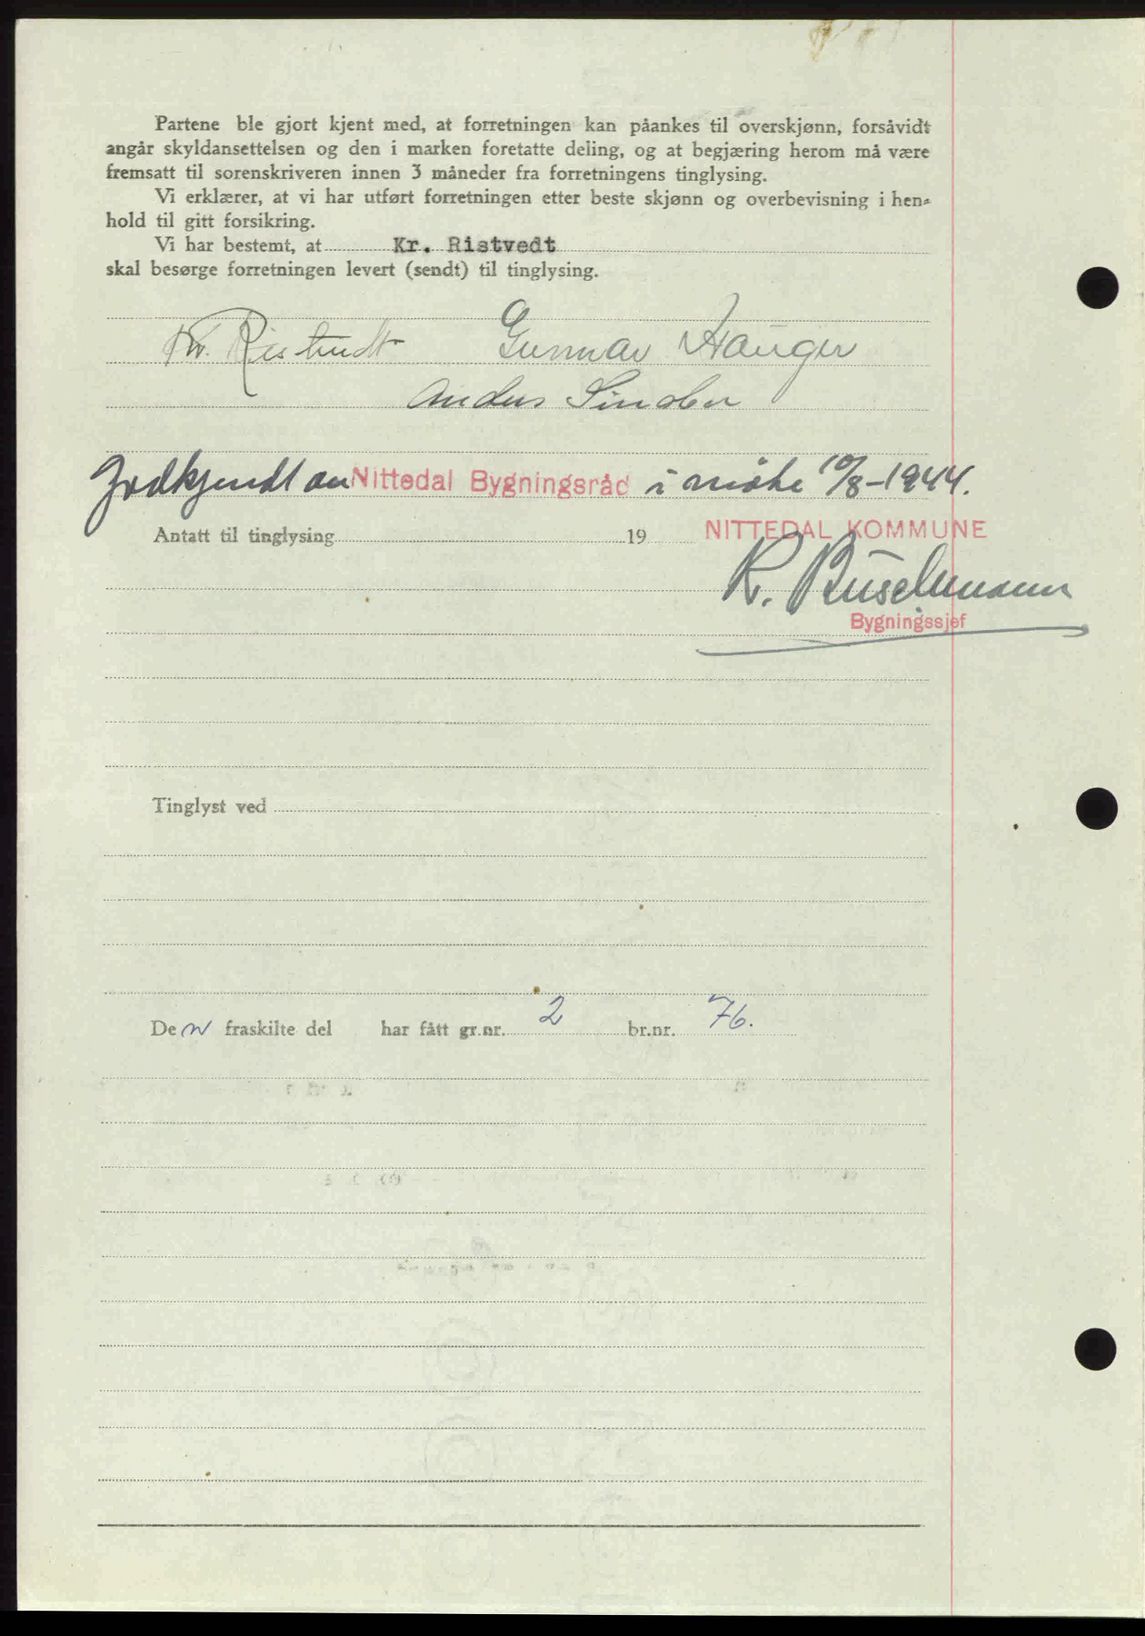 Partene ble gjort kjent med, at forretningen kan påankes til overskjønn, forsåvidt
angår skyldansettelsen og den i marken foretatte deling, og at begjæring herom må være
fremsatt til sorenskriveren innen 3 måneder fra forretningens tinglysing.
Vi erklærer, at vi har utført forretningen etter beste skjønn og overbevisning i hen-
hold til gitt forsikring.
Vi har bestemt, at Kr. Ristvedt
skal besørge forretningen levert (sendt) til tinglysing.
Kr. Ristvedt Gunnar Hauger
Anders Sinober
Godkjendt av Nittedal Bygningsråd i møte 10/8-1944.
Antatt til tinglysing 19 NITTEDAL KOMMUNE
R. Buschmann
Bygningssjef
Tinglyst ved
Den fraskilte del har fått gr.nr. 2 br.nr. 76.